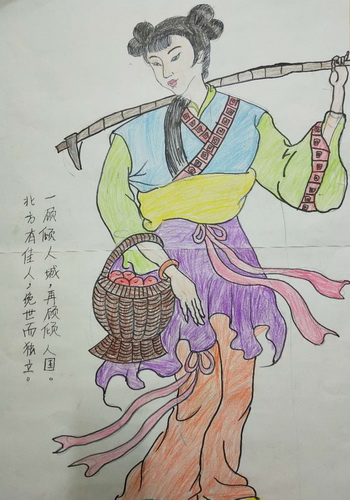 北方有佳人，绝世而独立。
一顾倾人城，再顾倾人国。